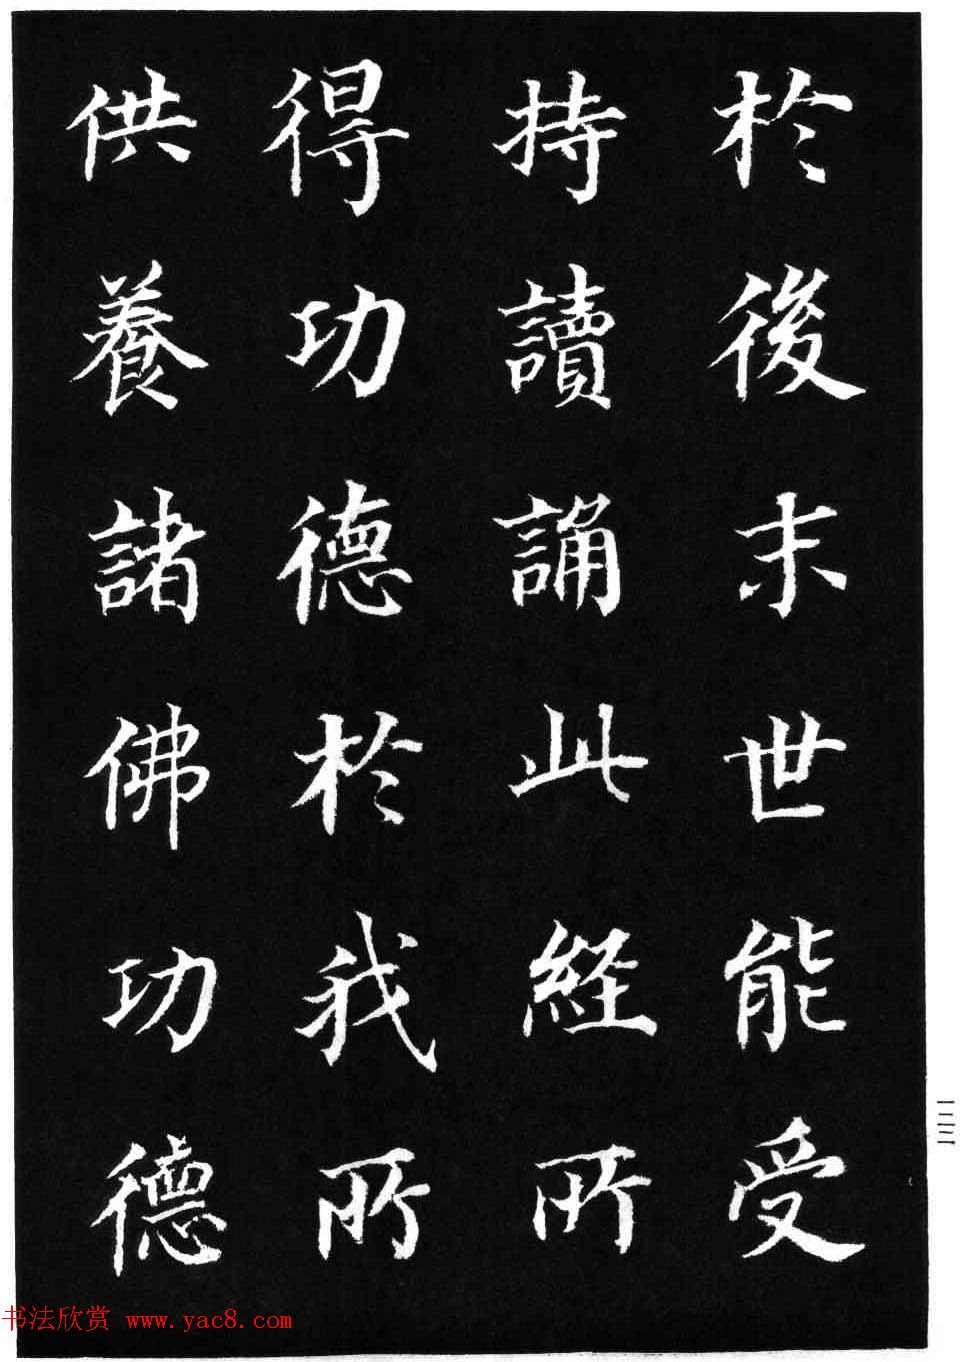 於後末世能受
持讀誦此經所
得功德於我所
供養諸佛功德
一三三
书法欣赏 www.yac8.com